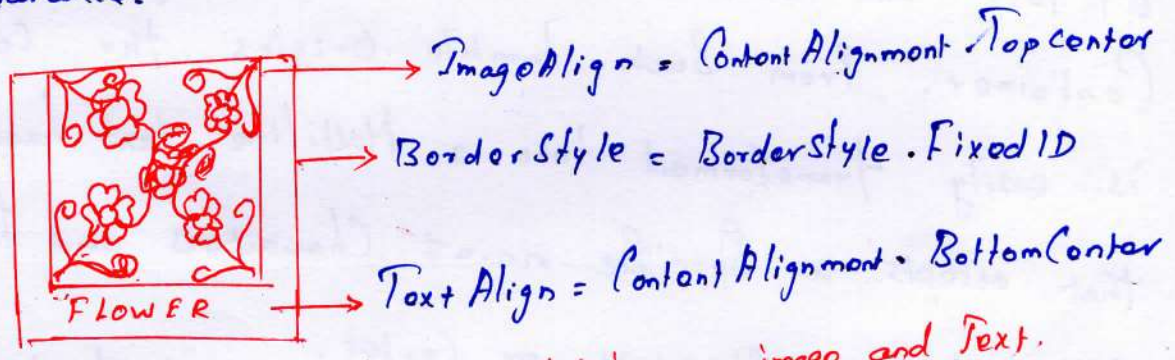 ImageAlign = ContentAlignment.TopCenter
BorderStyle = BorderStyle.FixedID
FLOWER
TextAlign = ContentAlignment.BottomCenter
image and Text.